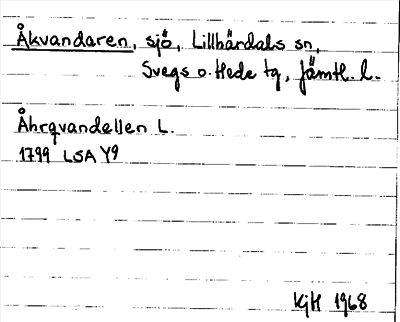 Åkvandaren, sjö, Lillhärdals sn,
Svegs o. Hede tg, Jämtl. l.
Åhrqvandellen L.
1799 LSA Y9
KjH 1968